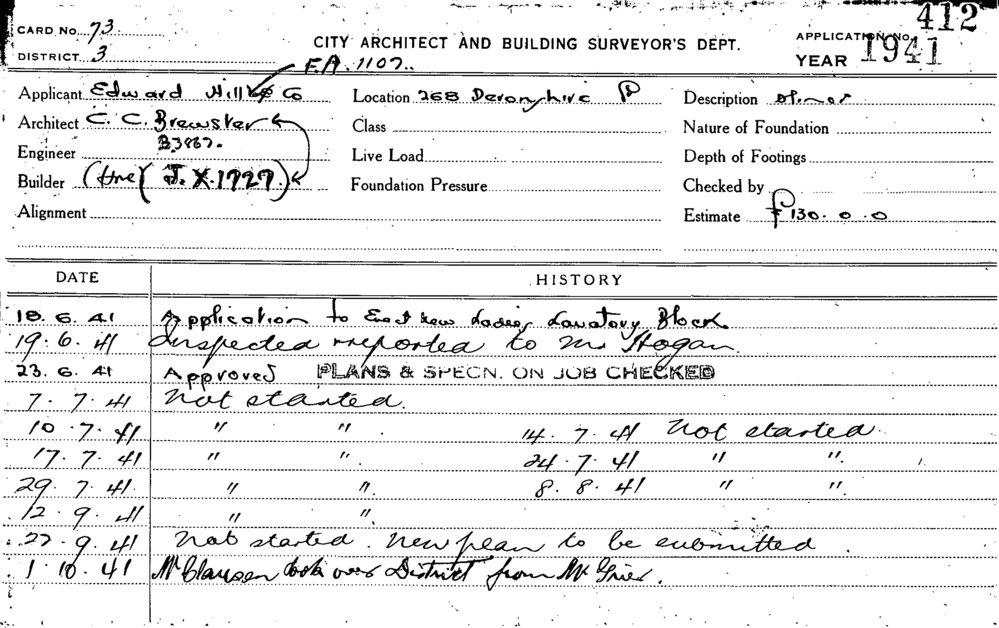 412
CARD No. 73
APPLICATION No.
DISTRICT 3
CITY ARCHITECT AND BUILDING SURVEYOR'S DEPT.
YEAR 1941
F.A. 1107.
Applicant Edward Hill & Co
Location 268 Devonshire
Description Minor
Architect C. C. Brewster
Class
Nature of Foundation
B3867.
Engineer
Live Load
Depth of Footings
Builder J. X. 1727
Foundation Pressure
Checked by
Alignment
Estimate £130. 0. 0
DATE HISTORY
18. 6. 41 Application to Erect new Ladies Lavatory Block
19. 6. 41 Inspected & reported to Mr Hogan.
23. 6. 41 Approved PLANS & SPECN. ON JOB CHECKED
7. 7. 41 Not started.
10. 7. 41 " " 14. 7. 41 Not started
17. 7. 41 " " 24. 7. 41 " "
29. 7. 41 " " 8. 8. 41 " "
12. 9. 41 " "
22. 9. 41 Not started. New plan to be submitted.
1. 10. 41 Mr Clausen took over District from Mr Grier.